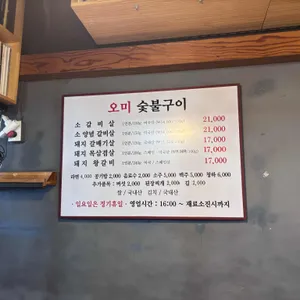 오미 숯불구이
소 갈 비 살 21,000
소 양념 갈비살 21,000
돼지 갈매기살 17,000
돼지 목살겹살 17,000
돼 지 왕 갈 비 17,000
라면 4,000 공기밥 2,000 음료수 2,000 소주 5,000 맥주 5,000 청하 6,000
추가품목 : 버섯 2,000 된장찌개 2,000 김 3,000
쌀 / 국내산 김치 / 국내산
· 일요일은 정기휴일 · 영업시간 : 16:00 ~ 재료소진시까지